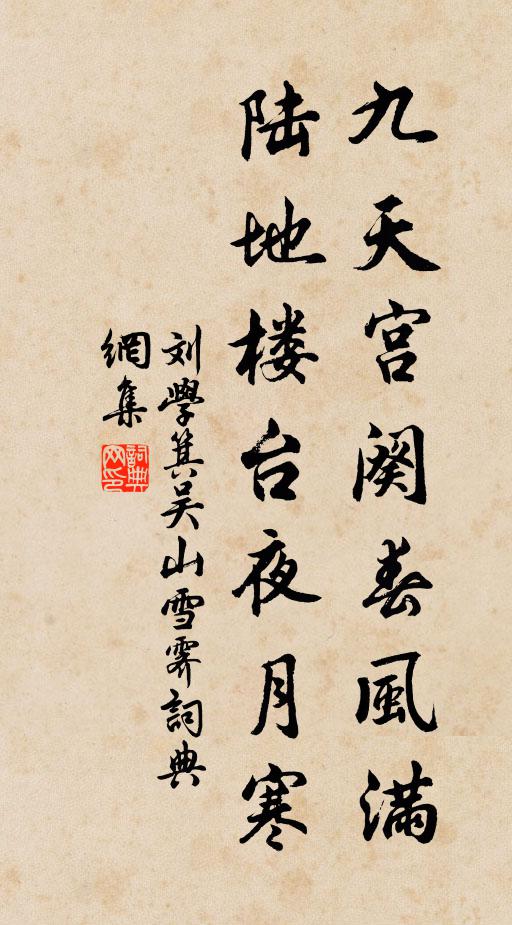 九天宫阙春風满
陆地楼台夜月寒
刘學箕吴山雪霽詞典
網集
詞典
网印